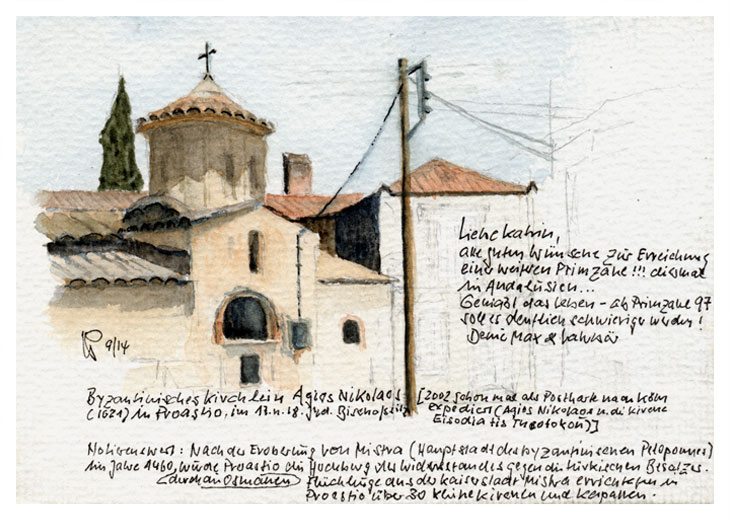 Liebe Katrin,
alle guten Wünsche zur Erreichung
einer weiteren Primzahl!!! diesmal
in Andalusien...
Genießt das Leben – ab Primzahl 97
soll es deutlich schwieriger werden!
Deine Max &
9/14
Byzantinisches Kirchlein Agios Nikolaos
(1621) in Proastio, im 17. u. 18. Jhd. Bischofssitz
[2002 schon mal als Postkarte nach Köln
expediert (Agios Nikolaos u. die Kirche
Eisodia tis Theotokou)]
Notierenswert: Nach der Eroberung von Mistra (Hauptstadt des byzantinischen Peloponnes)
im Jahre 1460, wurde Proastio ein Hochburg des Widerstandes gegen die türkischen Besatzer.
(durch die Osmanen) Flüchtlinge aus der Kaiserstadt Mistra errichteten in
Proastio über 30 kleine Kirchen und Kapellen.